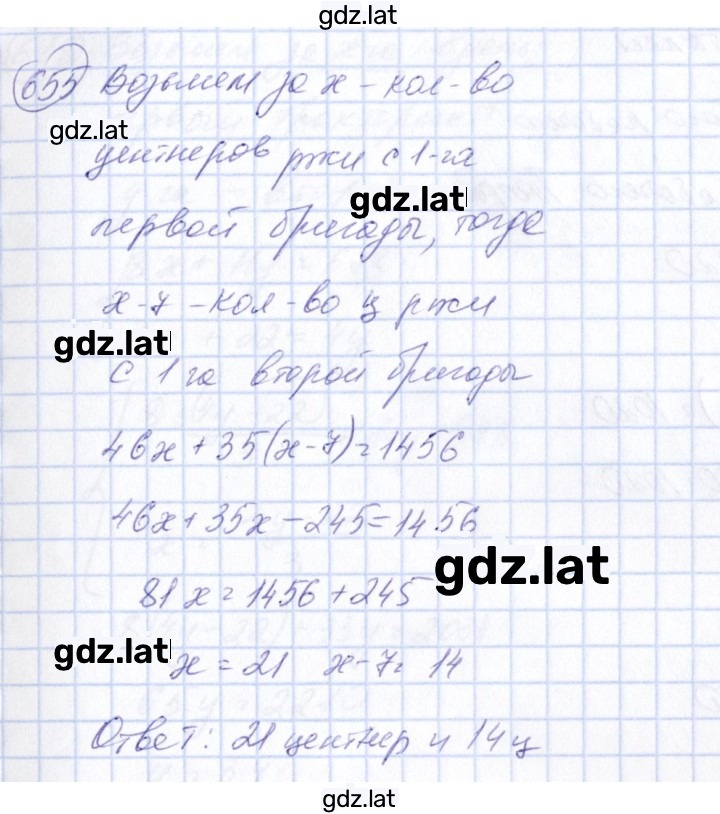 gdz.lat
655 Возьмем за x - кол-во
gdz.lat
центнеров ржи с 1-га
gdz.lat
первой бригады, тогда
x-7 - кол-во ц ржи
gdz.lat
с 1 га второй бригады
46x + 35(x-7) = 1456
46x + 35x - 245 = 1456
gdz.lat
81x = 1456 + 245
gdz.lat
x = 21 x-7 = 14
Ответ: 21 центнер и 14 ц
gdz.lat